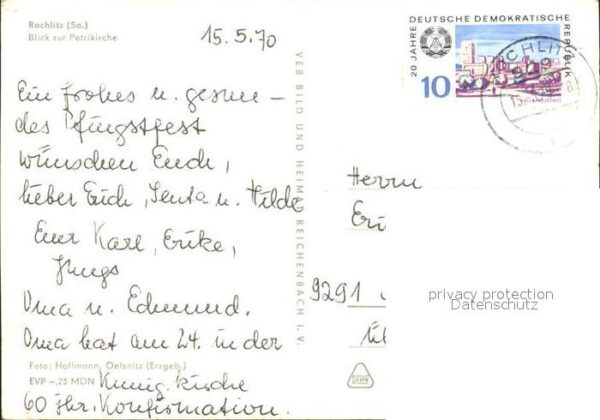 Rochlitz (Sa.)
Blick zur Petrikirche
15.5.70
Ein frohes u. gesun-
des Pfingstfest
wünschen Euch,
lieber Erich, Senta u. Hilde
Eure Karl, Erika,
Jungs
Oma u. Edmund.
Oma hat am 24. in der
Kunig. kirche
60 jhr. Konfirmation.
Foto: Hoffmann, Oelsnitz (Erzgeb.)
EVP -,25 MDN
VEB BILD UND HEIMAT REICHENBACH I. V.
20 JAHRE DEUTSCHE DEMOKRATISCHE REPUBLIK
10
Herrn
Eri
9291
privacy protection
Datenschutz